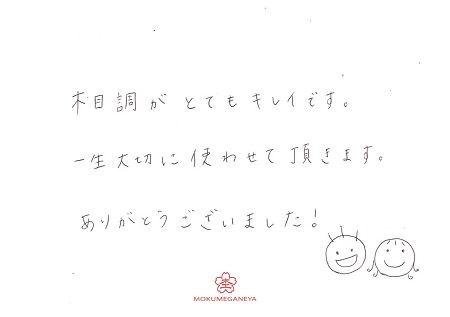 木目調がとてもキレイです。
一生大切に使わせて頂きます。
ありがとうございました!
MOKUMEGANEYA